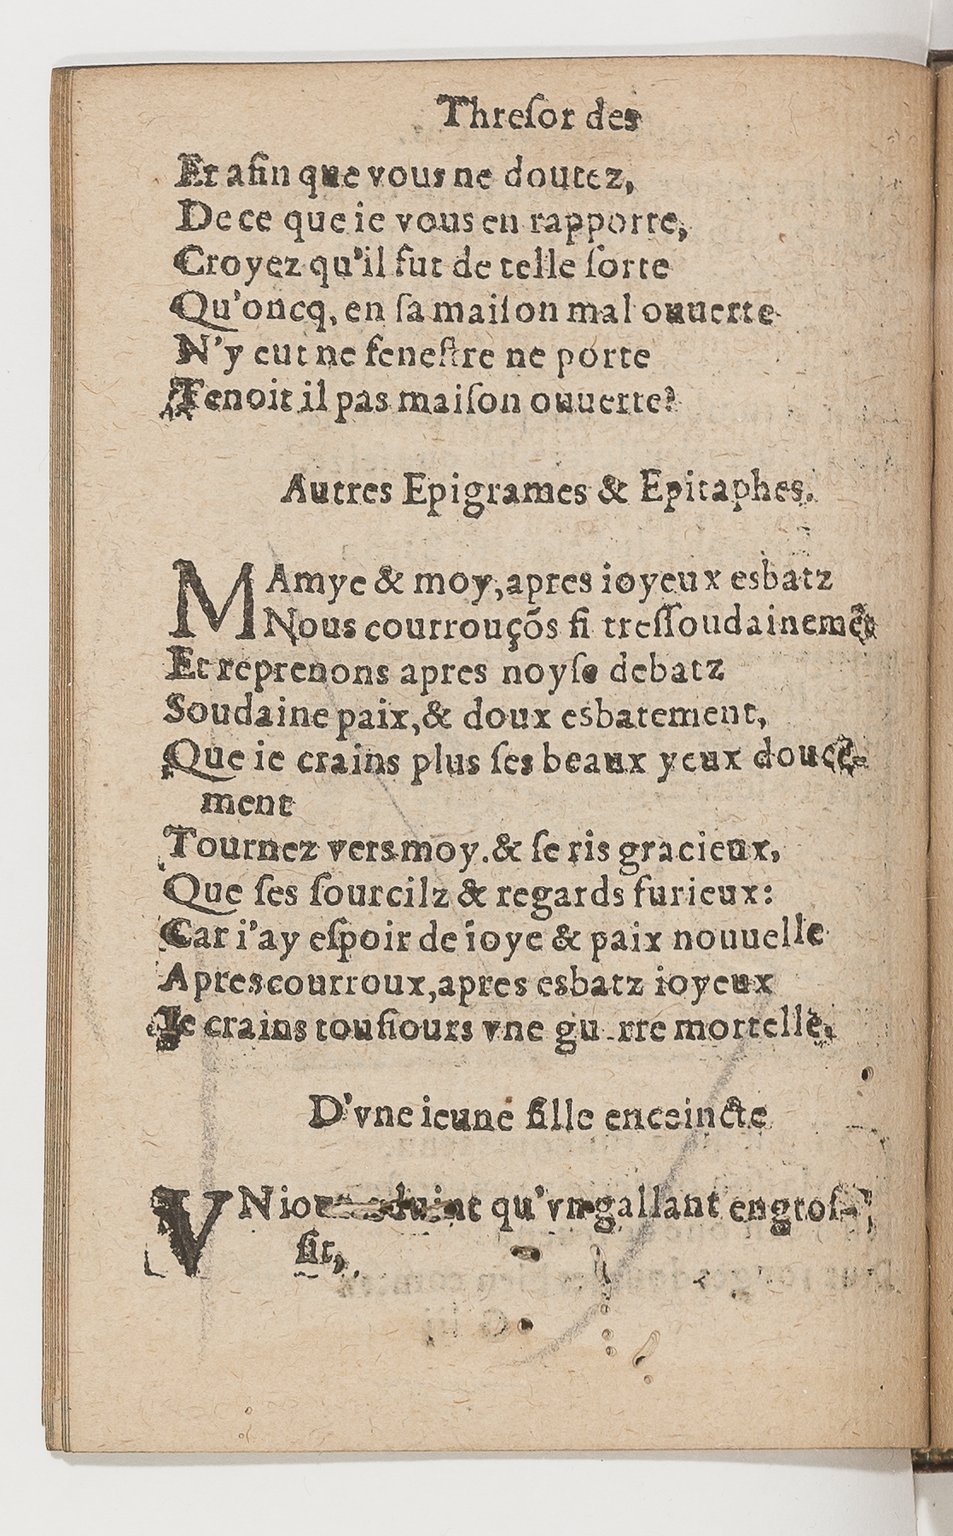 Threſor des
Et afin que vous ne doutez,
De ce que ie vous en rapporte,
Croyez qu'il fut de telle ſorte
Qu'oncq, en ſa maiſon mal ouuerte
N'y eut ne feneſtre ne porte
Tenoit il pas maiſon ouuerte?
Autres Epigrames & Epitaphes.
MAmye & moy, apres ioyeux esbatz
Nous courrouçõs ſi treſſoudainemẽt
Et reprenons apres noyſe debatz
Soudaine paix, & doux esbatement,
Que ie crains plus ſes beaux yeux douce-
ment
Tournez vers moy. & ſe ris gracieux,
Que ſes ſourcilz & regards furieux:
Car i'ay eſpoir de ioye & paix nouuelle
Apres courroux, apres esbatz ioyeux
Je crains touſiours vne gu rre mortelle.
D'vne ieune fille enceincte
VN iour aduint qu'vn gallant engroſ-
ſit,